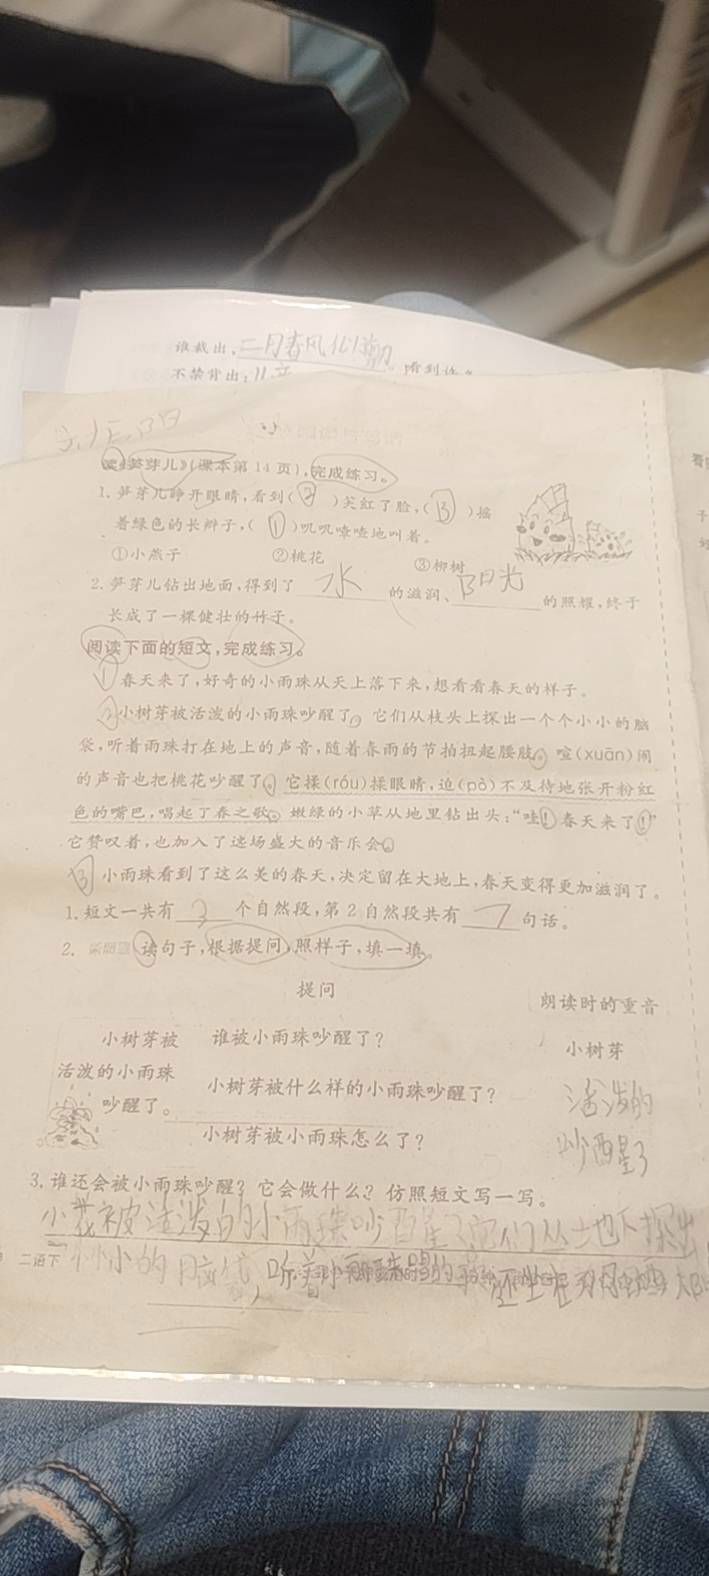 谁裁出,二月春风似剪刀
不禁背出:
读《笋芽儿》(课本第 14 页),完成练习。
1.笋芽儿睁开眼睛,看到(②)笑红了脸,(③)摇
着绿色的长辫子,(①)叽叽喳喳地叫着。
①小燕子 ②桃花 ③柳树
2.笋芽儿钻出地面,得到了水的滋润、阳光的照耀,终于
长成了一棵健壮的竹子。
阅读下面的短文,完成练习。
①春天来了,好奇的小雨珠从天上落下来,想看看春天的样子。
②小树芽被活泼的小雨珠吵醒了。它们从枝头上探出一个个小小的脑
袋,听着雨珠打在地上的声音,随着春雨的节拍扭起腰肢。喧(xuān)闹
的声音也把桃花吵醒了。它揉(róu)揉眼睛,迫(pò)不及待地张开粉红
色的嘴巴,唱起了春之歌。嫩绿的小草从地里钻出头:“哇!春天来了!”
它赞叹着,也加入了这场盛大的音乐会。
③小雨珠看到了这么美的春天,决定留在大地上,春天变得更加滋润了。
1.短文一共有3个自然段,第 2 自然段共有7句话。
2. 读句子,根据提问,照样子,填一填。
提问 朗读时的重音
小树芽被 谁被小雨珠吵醒了? 小树芽
活泼的小雨珠 小树芽被什么样的小雨珠吵醒了? 活泼的
吵醒了。 小树芽被小雨珠怎么了? 吵醒了
3.谁还会被小雨珠吵醒?它会做什么?仿照短文写一写。
小花被活泼的小雨珠吵醒了它们从土地下探出
二语下 小小的脑袋,听着小雨珠